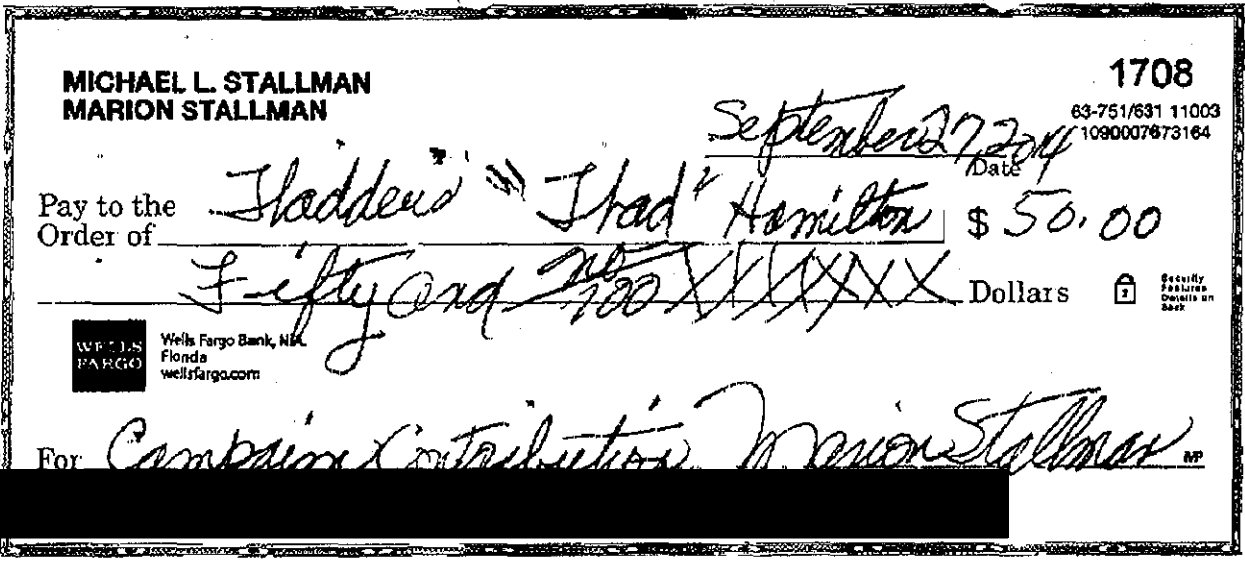 MICHAEL L. STALLMAN
MARION STALLMAN
1708
63-751/631 11003
1090007673164
September 27, 2014
Date
Pay to the Order of Thaddeus "Thad" Hamilton $ 50.00
Fifty and no/100 XXXXXX Dollars
Security Features Details on Back
WELLS FARGO
Wells Fargo Bank, N.A.
Florida
wellsfargo.com
For Campaign Contribution Marion Stallman MP